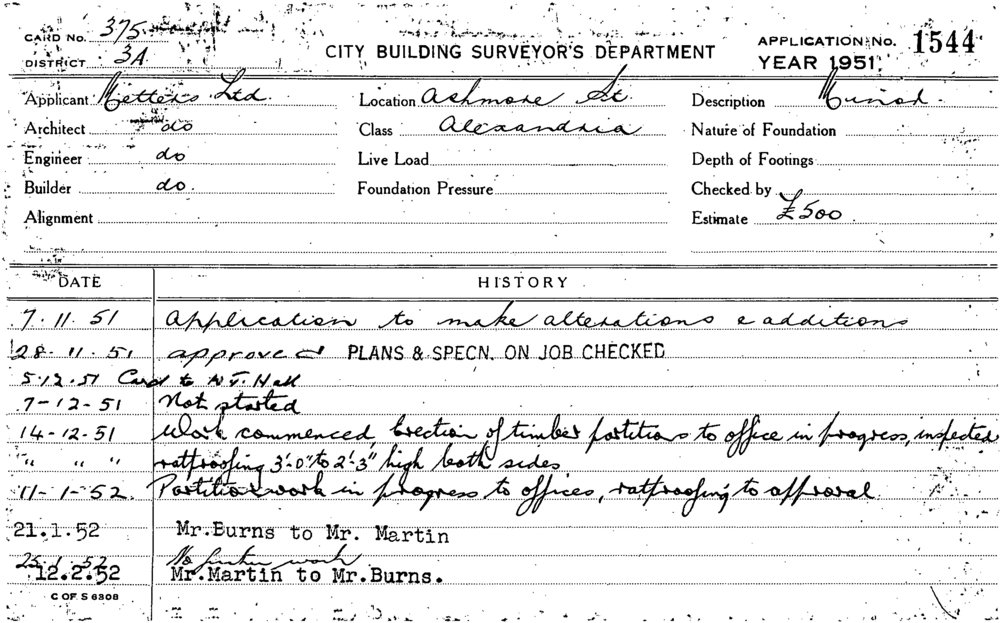 CARD No. 375
DISTRICT 3A
CITY BUILDING SURVEYOR'S DEPARTMENT
APPLICATION No. 1544
YEAR 1951
Applicant Metters Ltd. Location Ashmore St Description Minor
Architect do Class Alexandria Nature of Foundation
Engineer do Live Load Depth of Footings
Builder do. Foundation Pressure Checked by
Alignment Estimate £500
DATE HISTORY
7.11.51 Application to make alterations & additions
28.11.51 approved PLANS & SPECN. ON JOB CHECKED
5.12.51 Card to Hall
7-12-51 Not started
14-12-51 Work commenced, Erection of timber partitions to office in progress, inspected
" " " ratproofing 3'-0" to 2'-3" high both sides
11-1-52. Partition work in progress to offices, ratproofing to approval
21.1.52 Mr.Burns to Mr. Martin
25.1.52 No further work
12.2.52 Mr.Martin to Mr.Burns.
C OF S 6308